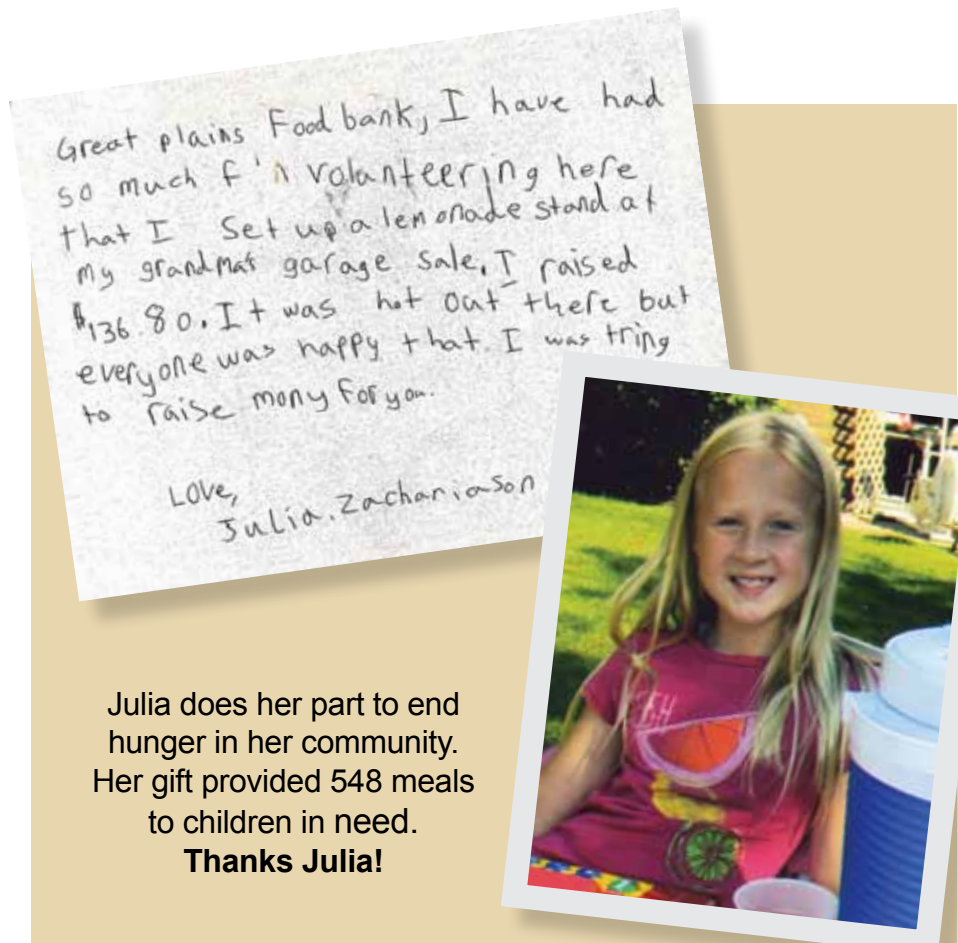 Great plains Food bank, I have had
so much f'n volanteering here
that I Set up a lemonade stand at
my grandmas garage sale. I raised
$136.80. It was hot out there but
everyone was happy that. I was tring
to raise mony for you.
Love,
Julia. Zachariason
Julia does her part to end
hunger in her community.
Her gift provided 548 meals
to children in need.
Thanks Julia!